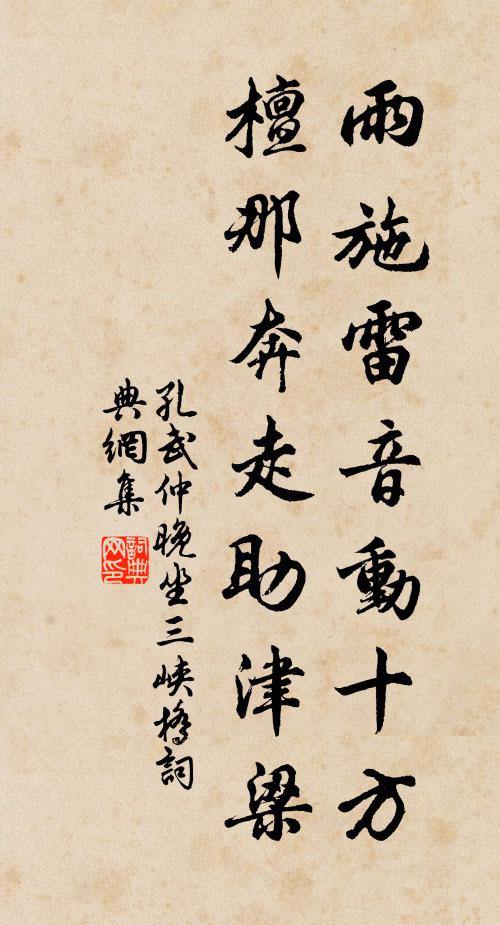 雨施雷音動十方
檀那奔走助津梁
孔武仲晚坐三峽橋詞
典網集
詞典網印